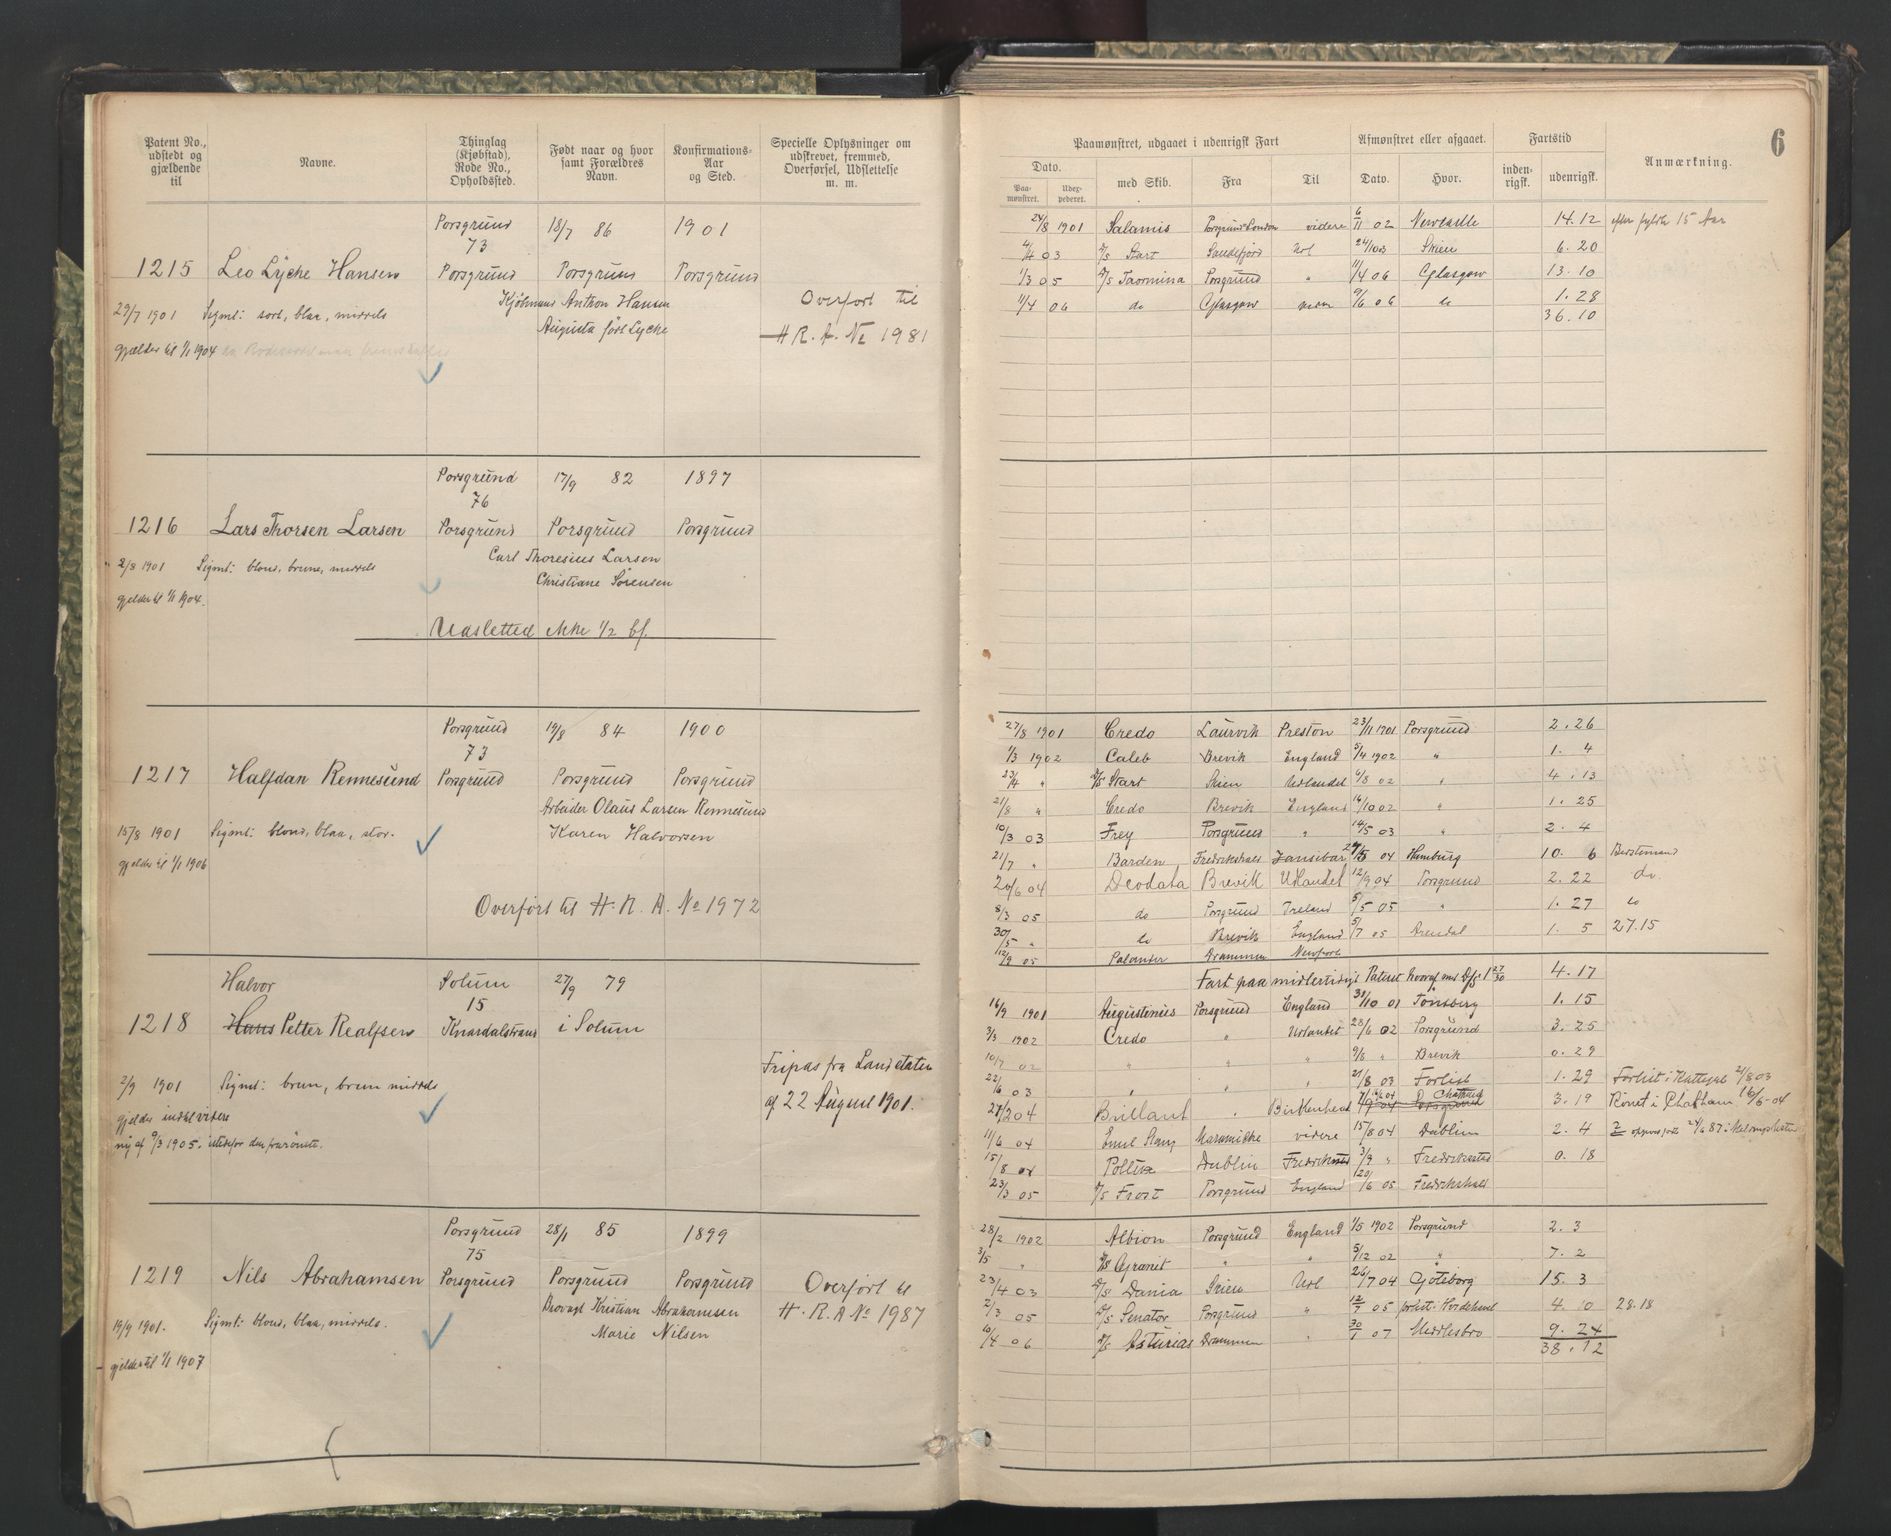 Patent No., udstedt og gjældende til
Navne.
Thinglag (Kjøbstad), Rode No., Opholdssted.
Født naar og hvor samt Forældres Navn.
Konfirmations-Aar og Sted.
Specielle Oplysninger om udskrevet, fremmed, Overførsel, Udslettelse m. m.
Porsgrund 18/7 86 1901
73
1215 Leo Lyche Hansen Porsgrund Porsgrund Porsgrund
29/7 1901 Signt: sort, blaa, middels Anthon Hansen Overført til
Augusta født Lyche H. R. A. No 1981
gjælder til 1/1 1904
Porsgrund 17/9 82 1897
76
1216 Lars Thorsen Larsen Porsgrund Porsgrund Porsgrund
2/8 1901 Signt: blond, brune, middels Carl Thoresius Larsen
Christiane Sørensen
gjelder til 1/1 1904.
Udsletted 1/2 bf.
Porsgrund 19/8 84 1900
73
1217 Halfdan Rennesund Porsgrund Porsgrund Porsgrund
Arbeider Olaus Larsen Rennesund
15/8 1901 Signt: blond, blaa, stor. Karen Halvorsen
gjelder til 1/1 1906
Overført til H. R. A. No 1972
Halvor Solum 27/9 79
15
1218 Hans Petter Realfsen Knardalstrand i Solum
Fripas fra Landetaten
2/9 1901 Signt: brun, brun middels
af 22 August 1901.
gjelder indtil videre
ny af 9/3 1905. istedefor den frarøvnte.
Porsgrund 28/1 85 1899
75
1219 Nils Abrahamsen Porsgrund Porsgrund Porsgrund Overført til
Kristian Abrahamsen H. R. A No 1987
19/9 1901. Signt: blond, blaa, middels. Marie Nilsen
gjelder til 1/1 1907
6
Paamønstret, udgaaet i udenrigsk Fart
Afmønstret eller afgaaet.
Fartstid
Anmærkning.
Dato.
Paa-mønstret. Udex-pederet. med Skib. Fra Til Dato. Hvor. inden-rigsk. udenrigsk.
24/8 1901 Salamis Porsgrund London videre 6/11 02 Newcastle 14.12 efter fyldte 15 Aar
4/4 03 D/S Start Sandefjord Udl 24/10 03 Skien 6.20
1/3 05 D/S Taormina Porsgrund " 11/4 06 Glasgow 13.10
11/4 06 do Glasgow viden 9/6 06 do 1.28
36.10
27/8 1901 Credo Laurvik Preston 23/11 1901 Porsgrund 2.26
1/3 1902 Caleb Brevik England 5/4 1902 " 1. 4
23/4 " D/S Start Skien Udlandet 6/8 02 " 4.13
21/8 " Credo Brevik England 16/10 02 " 1.25
10/3 03 Frey Porsgrund " 14/5 03 " 2.4
21/7 " Barden Fredrikshald Zansibar 27/5 04 Hamburg 10. 6 Bestemand
20/6 04 Deodata Brevik Udlandet 12/9 04 Porsgrund 2.22 do.
8/3 05 do Porsgrund Ireland 5/5 05 " 1.27 do
30/5 " do Brevik England 5/7 05 Arendal 1. 5 27.15
12/9 05 Palander Drammen Newport
Fart paa midlertidigt Patent hvoraf med D/S 1 27/30 4.17
16/9 1901 Augustinius Porsgrund England 31/10 01 Tønsberg 1.15
3/3 1902 Credo " Udlandet 28/6 02 Porsgrund 3.25
10/7 02 " " " 9/8 " Brevik 0.29
22/6 03 " " " 21/8 03 Forlist 1.29 Forlist i Kattegat 21/8 03
27/2 04 Brillant " Birkenhead 16/6 04 Chatham 3.19 Rømt i Chatham 16/6-04
11/6 04 Emil Stang videre 15/8 04 Dublin 2.4
15/8 04 Pollux Dublin Fredriksstad 3/9 " Fredriksstad 0.18
23/3 05 D/S Frost Porsgrund England 20/6 05 Fredrikshald
28/2 1902 Albion Porsgrund England 1/5 1902 Porsgrund 2.3
3/5 " D/S Granit " " 5/12 02 " 7.2
23/4 03 D/S Dania Skien Udl 26/7 04 Gøteborg 15.3
2/3 05 D/S Senator Porsgrund " 12/7 05 forlist 4.10 28.18
10/4 06 D/S Asturias Drammen " 30/1 07 Middlesbro 9.24
38.12